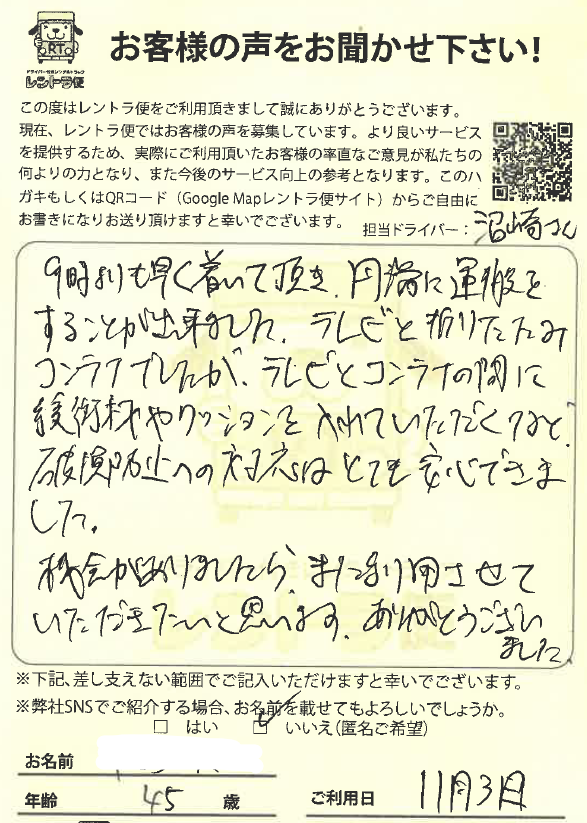 お客様の声をお聞かせ下さい！
RT
ドライバー付きレンタルトラック
レントラ便
この度はレントラ便をご利用頂きまして誠にありがとうございます。
現在、レントラ便ではお客様の声を募集しています。より良いサービス
を提供するため、実際にご利用頂いたお客様の率直なご意見が私たちの
何よりの力となり、また今後のサービス向上の参考となります。このハ
ガキもしくはQRコード（Google Mapレントラ便サイト）からご自由に
お書きになりお送り頂けますと幸いでございます。
担当ドライバー：沼崎さん
9時よりも早く着いて頂き、円滑に運搬を
することが出来ました。テレビと折りたたみ
コンテナでしたが、テレビとコンテナの間に
緩衝材やクッションを入れていただくなど、
破損防止への対応はとても安心できま
した。
機会がありましたら、また利用させて
いただきたいと思います。ありがとうござい
ました。
※下記、差し支えない範囲でご記入いただけますと幸いでございます。
※弊社SNSでご紹介する場合、お名前を載せてもよろしいでしょうか。
□ はい ☑ いいえ（匿名ご希望）
お名前
年齢 45 歳 ご利用日 11月3日